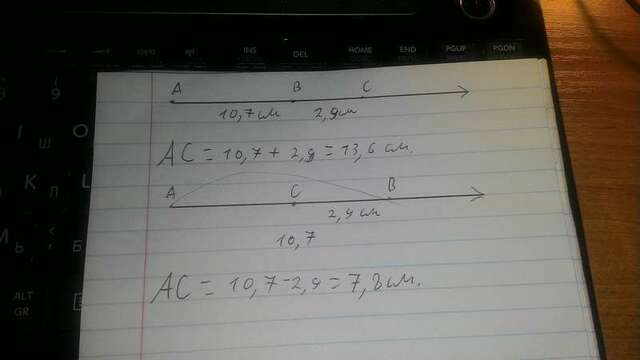 INS
DEL
HOME
END
PGUP
PGDN
9
Ш
O
К
Л
Ь
Б
ALT
GR
A B C
10,7 см 2,9 см
AC = 10,7 + 2,9 = 13,6 см.
A C B
2,9 см
10,7
AC = 10,7 - 2,9 = 7,8 см.